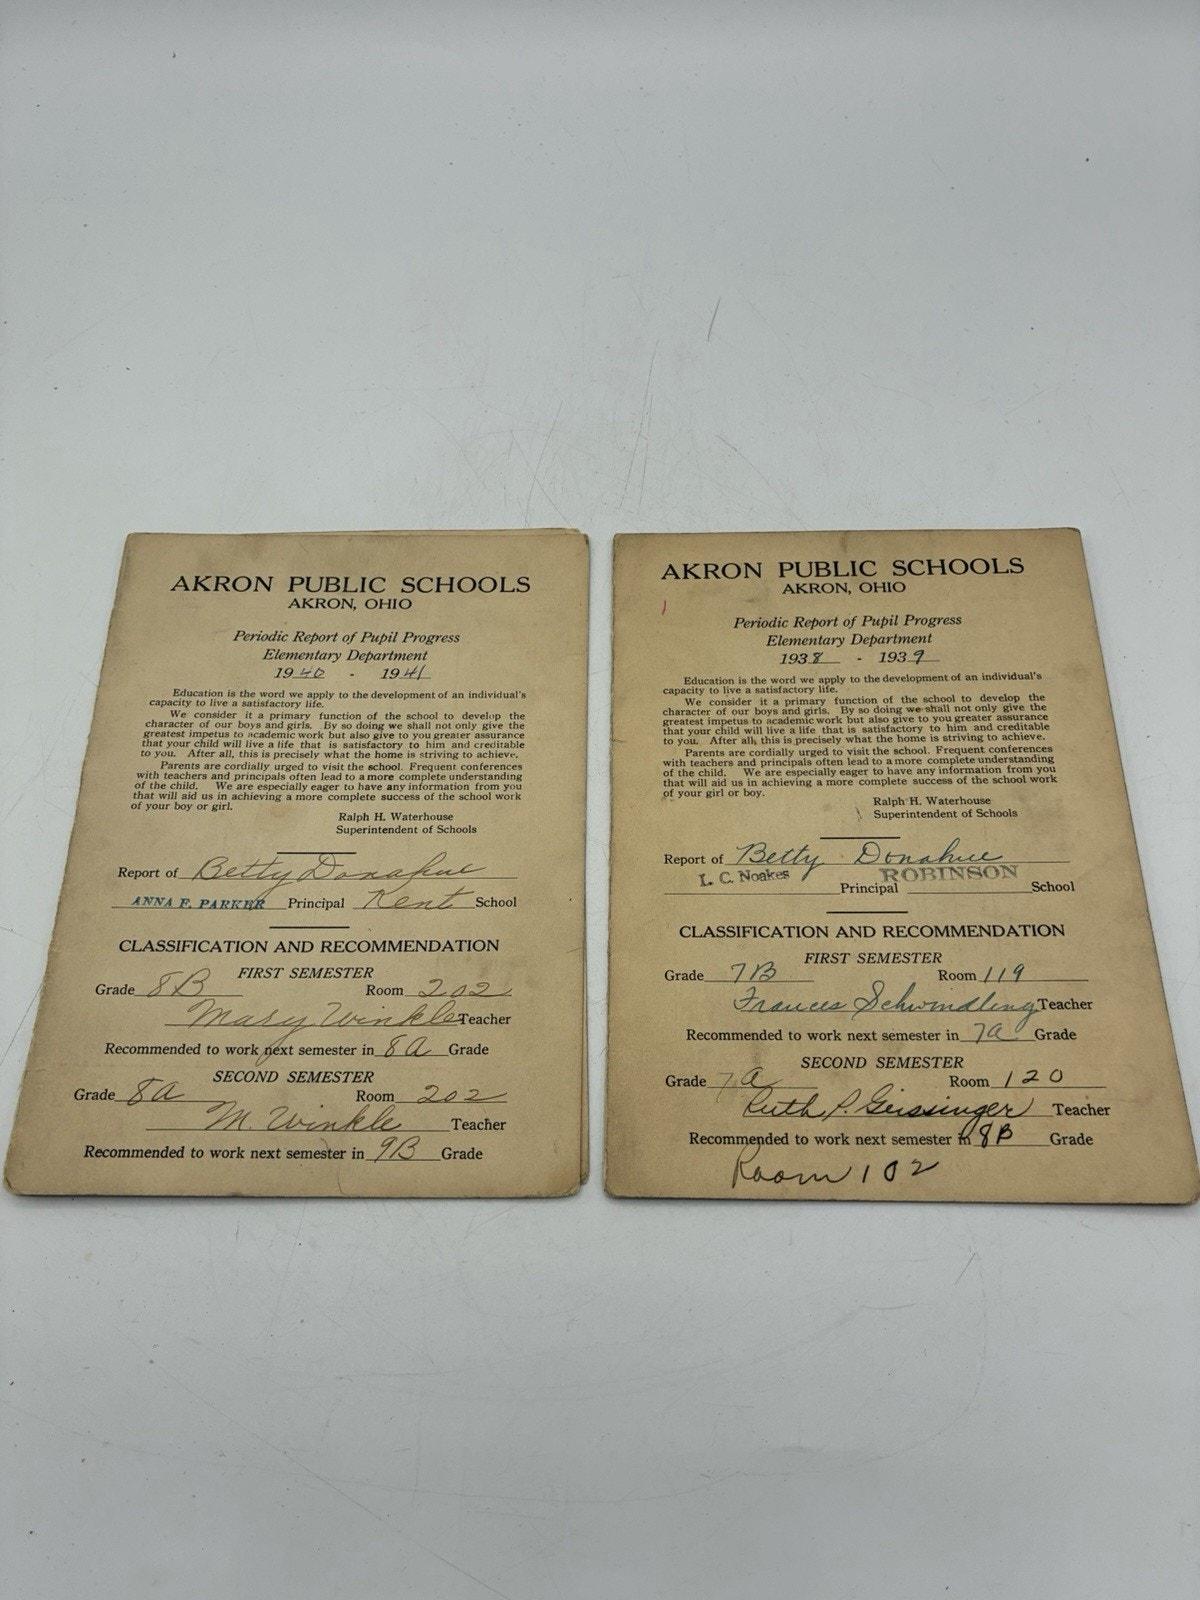 AKRON PUBLIC SCHOOLS
AKRON, OHIO
Periodic Report of Pupil Progress
Elementary Department
1940 - 1941
Education is the word we apply to the development of an individual's
capacity to live a satisfactory life.
We consider it a primary function of the school to develop the
character of our boys and girls. By so doing we shall not only give the
greatest impetus to academic work but also give to you greater assurance
that your child will live a life that is satisfactory to him and creditable
to you. After all, this is precisely what the home is striving to achieve.
Parents are cordially urged to visit the school. Frequent conferences
with teachers and principals often lead to a more complete understanding
of the child. We are especially eager to have any information from you
that will aid us in achieving a more complete success of the school work
of your boy or girl.
Ralph H. Waterhouse
Superintendent of Schools
Report of Betty Donahue
ANNA F. PARKER Principal Kent School
CLASSIFICATION AND RECOMMENDATION
FIRST SEMESTER
Grade 8B Room 202
Mary Winkle Teacher
Recommended to work next semester in 8A Grade
SECOND SEMESTER
Grade 8A Room 202
M. Winkle Teacher
Recommended to work next semester in 9B Grade
AKRON PUBLIC SCHOOLS
AKRON, OHIO
Periodic Report of Pupil Progress
Elementary Department
1938 - 1939
Education is the word we apply to the development of an individual's
capacity to live a satisfactory life.
We consider it a primary function of the school to develop the
character of our boys and girls. By so doing we shall not only give the
greatest impetus to academic work but also give to you greater assurance
that your child will live a life that is satisfactory to him and creditable
to you. After all, this is precisely what the home is striving to achieve.
Parents are cordially urged to visit the school. Frequent conferences
with teachers and principals often lead to a more complete understanding
of the child. We are especially eager to have any information from you
that will aid us in achieving a more complete success of the school work
of your girl or boy.
Ralph H. Waterhouse
Superintendent of Schools
Report of Betty Donahue
L. C. Noakes Principal ROBINSON School
CLASSIFICATION AND RECOMMENDATION
FIRST SEMESTER
Grade 7B Room 119
Frances Schwindling Teacher
Recommended to work next semester in 7A Grade
SECOND SEMESTER
Grade 7A Room 120
Ruth P. Geissinger Teacher
Recommended to work next semester in 8B Grade
Room 102